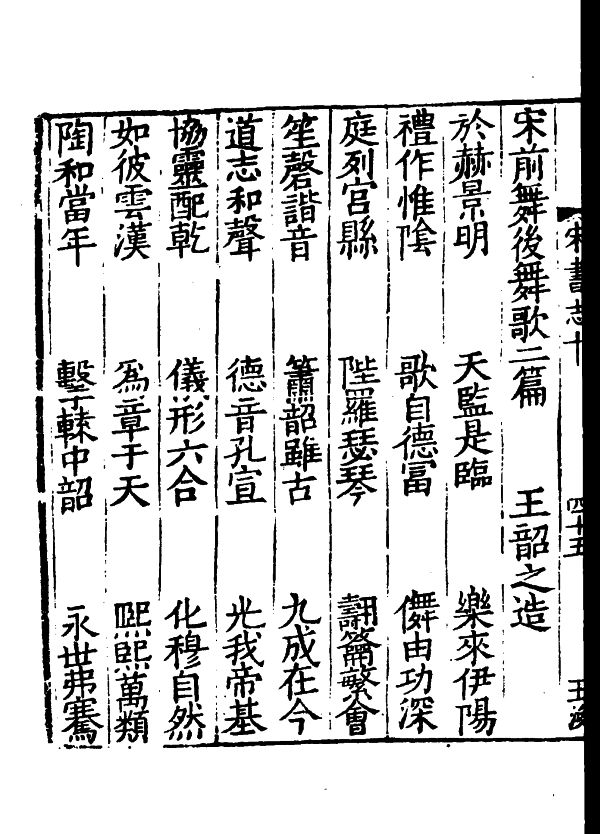 宋書志十 四十五
宋前舞後舞歌二篇 王韶之造
於赫景明 天監是臨 樂來伊陽
禮作惟陰 歌自德富 儛由功深
庭列宮縣 陛羅瑟琴 翿籥繁會
笙磬諧音 簫韶雖古 九成在今
道志和聲 德音孔宣 光我帝基
協靈配乾 儀形六合 化穆自然
如彼雲漢 爲章于天 熙熙萬類
陶和當年 擊轅中韶 永世弗騫